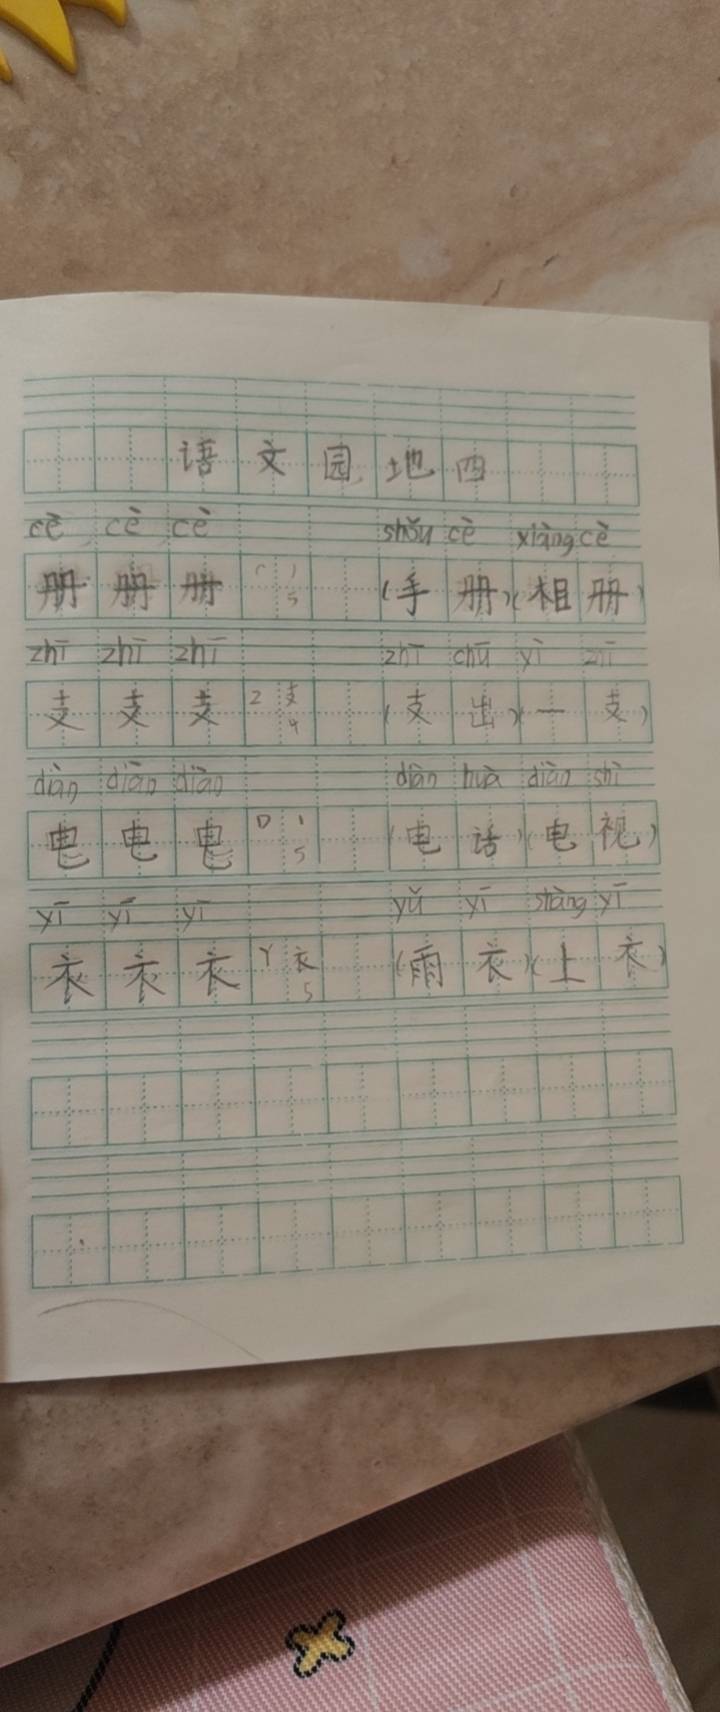 语文园地四
cè cè cè shǒu cè xiàng cè
册册册 C 丨 5 (手册)(相册)
zhī zhī zhī zhī chū yì zhī
支支支 Z 支 4 (支出)(一支)
diàn diàn diàn diàn huà diàn shì
电电电 D 丨 5 (电话)(电视)
yī yī yī yǔ yī shàng yī
衣衣衣 Y 衣 5 (雨衣)(上衣)